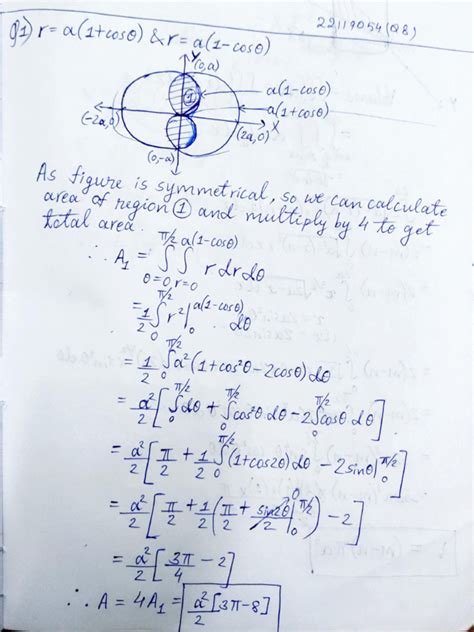 22119054(Q8)
Q1) r = a(1+cosθ) & r = a(1-cosθ)
Y(0,a)
a(1-cosθ)
a(1+cosθ)
①
X
(-2a,0)
(2a,0)
(0,-a)
As figure is symmetrical, so we can calculate
area of region ① and multiply by 4 to get
total area.
∴ A₁ = ∫_{θ=0}^{π/2} ∫_{r=0}^{a(1-cosθ)} r dr dθ
= 1/2 ∫_0^{π/2} r² |_0^{a(1-cosθ)} dθ
= 1/2 ∫_0^{π/2} a²(1+cos²θ-2cosθ) dθ
= a²/2 [∫_0^{π/2} dθ + ∫_0^{π/2} cos²θ dθ - 2∫_0^{π/2} cosθ dθ]
= a²/2 [π/2 + 1/2 ∫_0^{π/2} (1+cos2θ) dθ - 2sinθ |_0^{π/2}]
= a²/2 [π/2 + 1/2 (π/2 + sin2θ/2 |_0^{π/2}) - 2]
= a²/2 [3π/4 - 2]
∴ A = 4A₁ = a²/2 [3π-8]